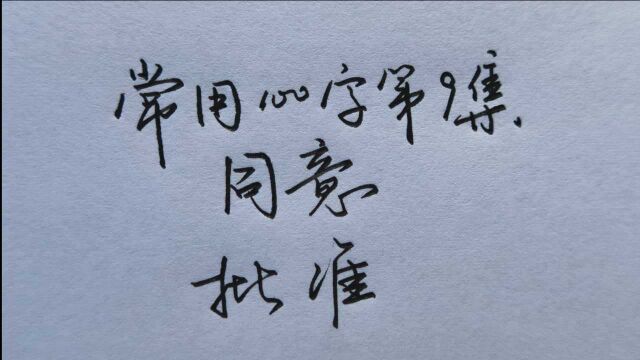 常用100字第9集
同意
批准